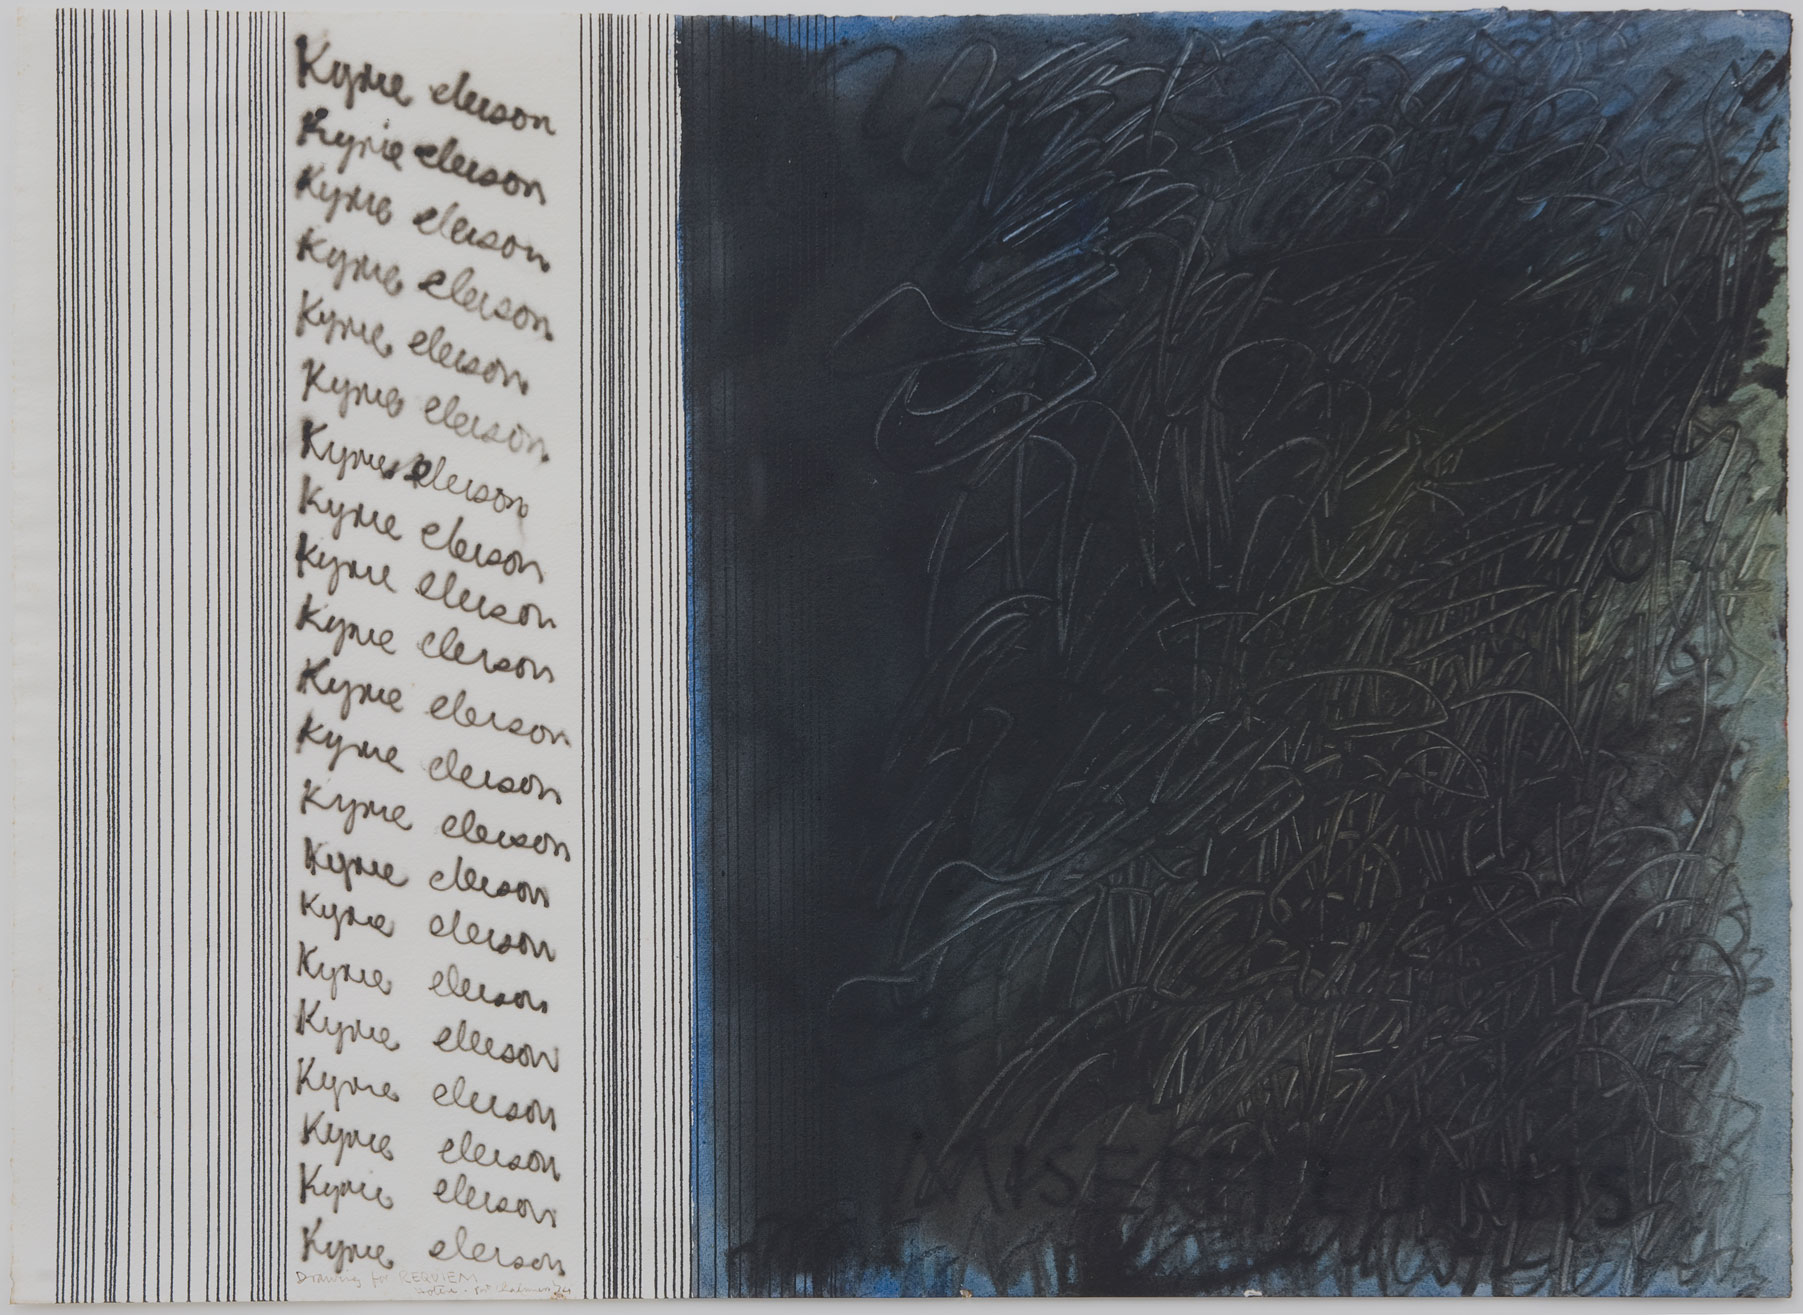 Kyrie eleison
Kyrie eleison
Kyrie eleison
Kyrie eleison
Kyrie eleison
Kyrie eleison
Kyrie eleison
Kyrie eleison
Kyrie eleison
Kyrie eleison
Kyrie eleison
Kyrie eleison
Kyrie eleison
Kyrie eleison
Kyrie eleison
Kyrie eleison
Kyrie eleison
Kyrie eleison
Kyrie eleison
Kyrie eleison
Kyrie eleison
Drawing for REQUIEM
MISERERE NOBIS